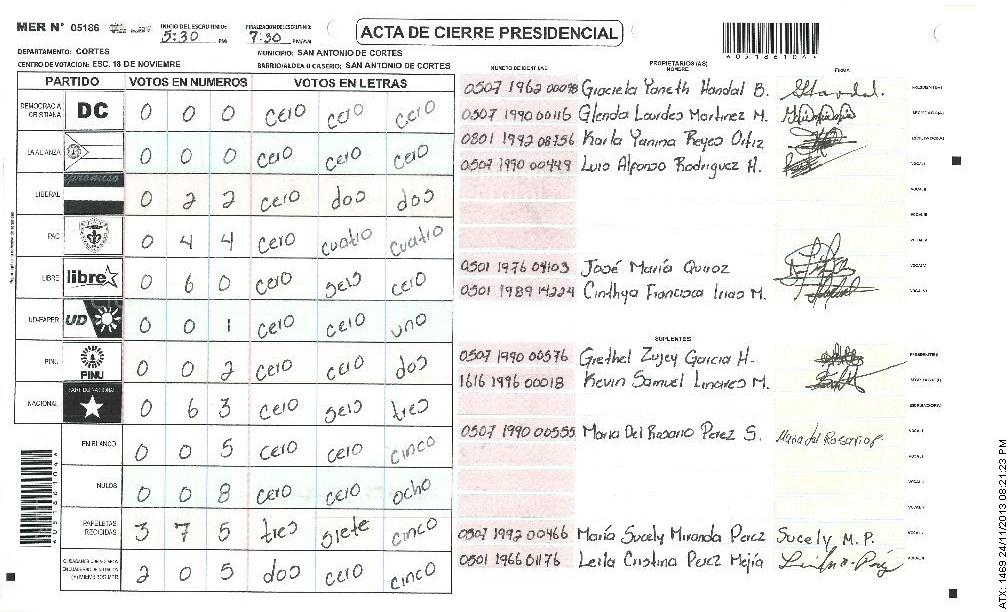 MER N° 05186 INICIO DEL ESCRUTINIO: 5:30 PM FINALIZACION DEL ESCRUTINIO: 7:30 PM/AM ACTA DE CIERRE PRESIDENCIAL
DEPARTAMENTO: CORTES MUNICIPIO: SAN ANTONIO DE CORTES
CENTRO DE VOTACION: ESC. 18 DE NOVIEMBRE BARRIO/ALDEA O CASERIO: SAN ANTONIO DE CORTES
PARTIDO VOTOS EN NUMEROS VOTOS EN LETRAS
DEMOCRACIA CRISTIANA DC 0 0 0 cero cero cero
LA ALIANZA 0 0 0 cero cero cero
LIBERAL 0 2 2 cero dos dos
PAC 0 4 4 cero cuatro cuatro
LIBRE libre 0 6 0 cero seis cero
UD-FAPER UD 0 0 1 cero cero uno
PINU PINU 0 0 2 cero cero dos
NACIONAL PARTIDO NACIONAL 0 6 3 cero seis tres
EN BLANCO 0 0 5 cero cero cinco
NULOS 0 0 8 cero cero ocho
PAPELETAS RECIBIDAS 3 7 5 tres siete cinco
2 0 5 dos cero cinco
NUMERO DE IDENTIDAD PROPIETARIOS (AS) NOMBRE FIRMA
0507 1962 00098 Graciela Yaneth Handal B. PRESIDENTE(A)
0507 1990 00116 Glenda Lourdes Martinez M. SECRETARIO(A)
0801 1992 08756 Karla Yanina Reyes Ortiz ESCRUTADOR(A)
0507 1990 00449 Luis Alfonso Rodriguez H. VOCAL I
VOCAL II
VOCAL III
VOCAL IV
0501 1976 04103 José María Quiroz VOCAL V
0501 1989 14224 Cinthya Francisca Irias M. VOCAL VI
SUPLENTES
0507 1990 00576 Grethel Zujey Garcia H. PRESIDENTE(A)
1616 1996 00018 Kevin Samuel Linares M. SECRETARIO(A)
ESCRUTADOR(A)
0507 1990 00555 Maria Del Rosario Perez S. Maria del Rosario P. VOCAL I
0507 1992 00466 María Sucely Miranda Perez Sucely M. P.
0501 1966 01176 Leila Cristina Perez Mejía
A05186104
ATX: 1469 24/11/2013 08:21:23 PM